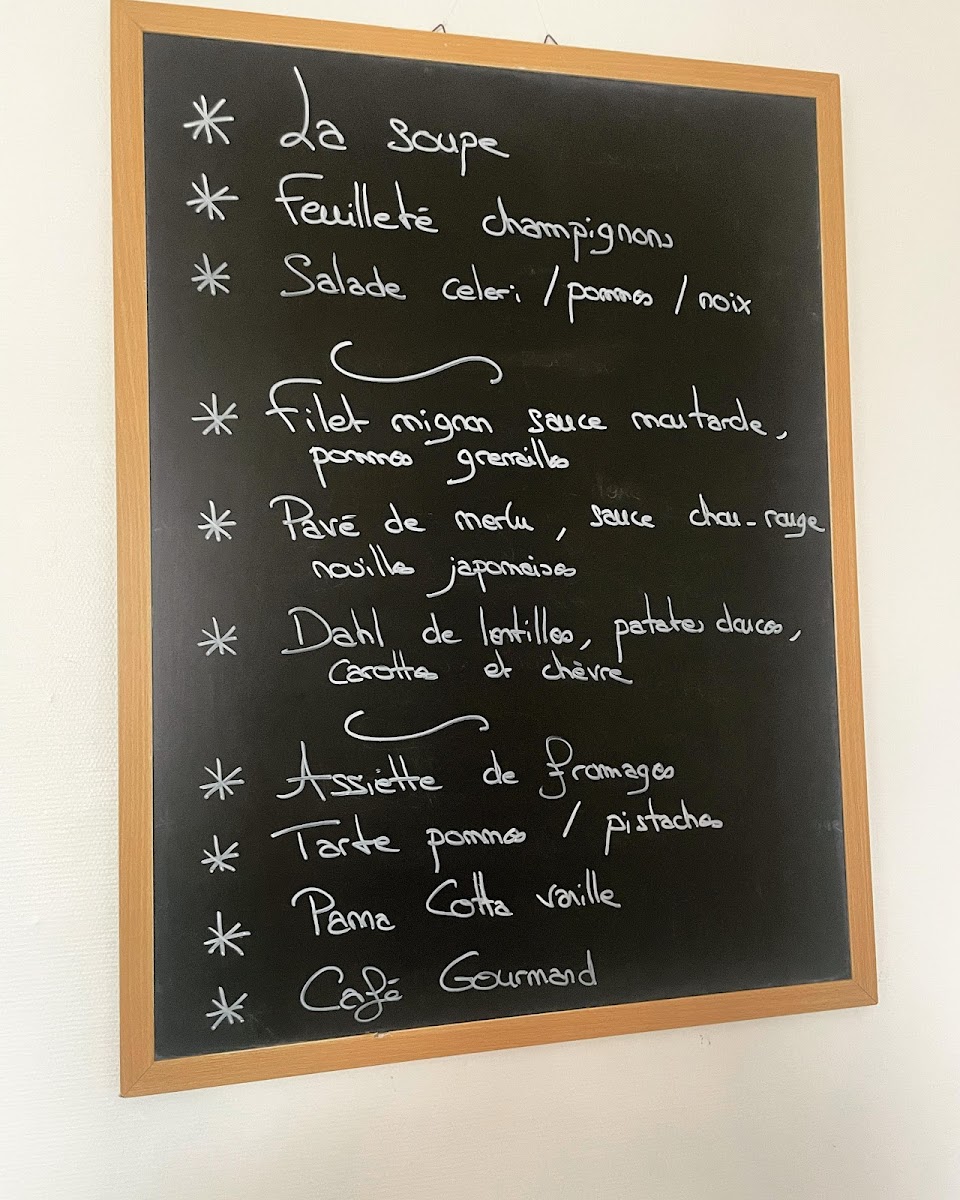 * La soupe
* Feuilleté champignons
* Salade celeri / pommes / noix
* Filet mignon sauce moutarde,
pommes grenailles
* Pavé de merlu, sauce chou-rouge
nouilles japonaises
* Dahl de lentilles, patates douces,
carottes et chèvre
* Assiette de fromages
* Tarte pommes / pistaches
* Panna Cotta vanille
* Café Gourmand